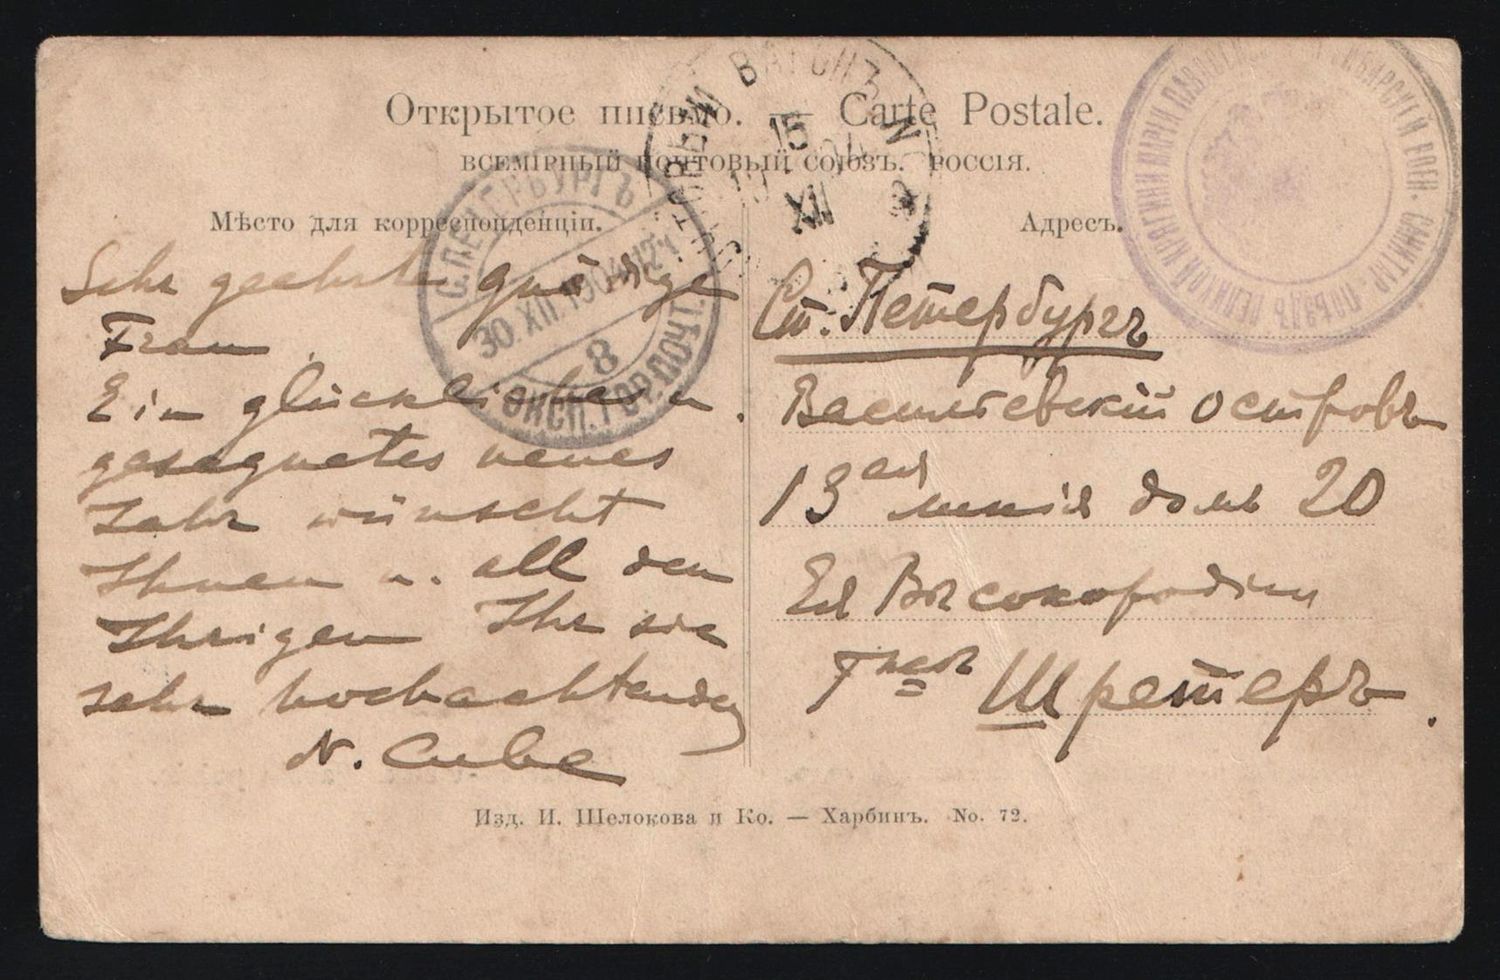 Открытое письмо. — Carte Postale.
ВСЕМІРНЫЙ ПОЧТОВЫЙ СОЮЗЪ. РОССІЯ.
Мѣсто для корреспонденціи.
Адресъ.
ВАГОНЪ №
15
XII
С.ПЕТЕРБУРГЪ
30.XII.1904.12ч
8
ЭКСП.ГОР.ПОЧТ.
Sehr geehrte gnädige
Frau
Ein glückliches u.
gesegnetes neues
Jahr wünscht
Ihnen u. all den
Ihrigen Ihr sie
sehr hochachtender
N. Cube
Ст. Петербургъ
Васильевскій островъ
13ая линія домъ 20
Ея Высокородію
Г-жѣ Шретеръ.
Изд. И. Щелокова и Ко. — Харбинъ. No. 72.